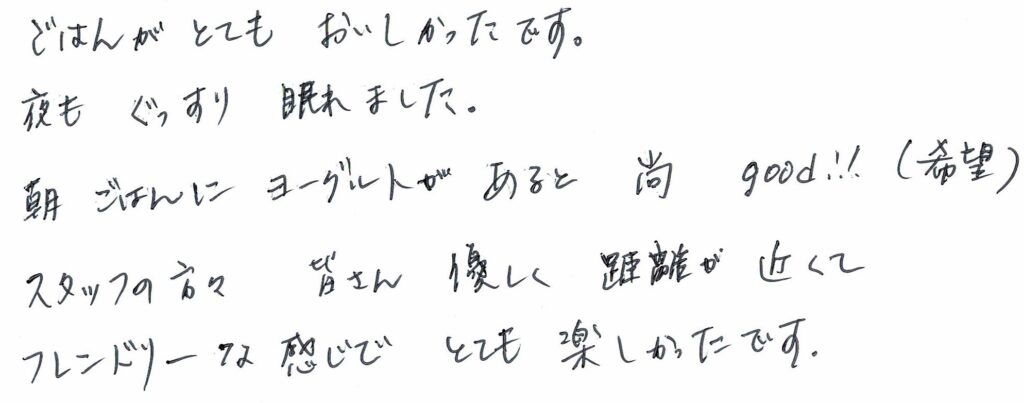 ごはんが とても おいしかったです。
夜も ぐっすり 眠れました。
朝ごはんに ヨーグルトが あると 尚 good!!（希望）
スタッフの方々 皆さん 優しく 距離が 近くて
フレンドリーな 感じで とても 楽しかったです.